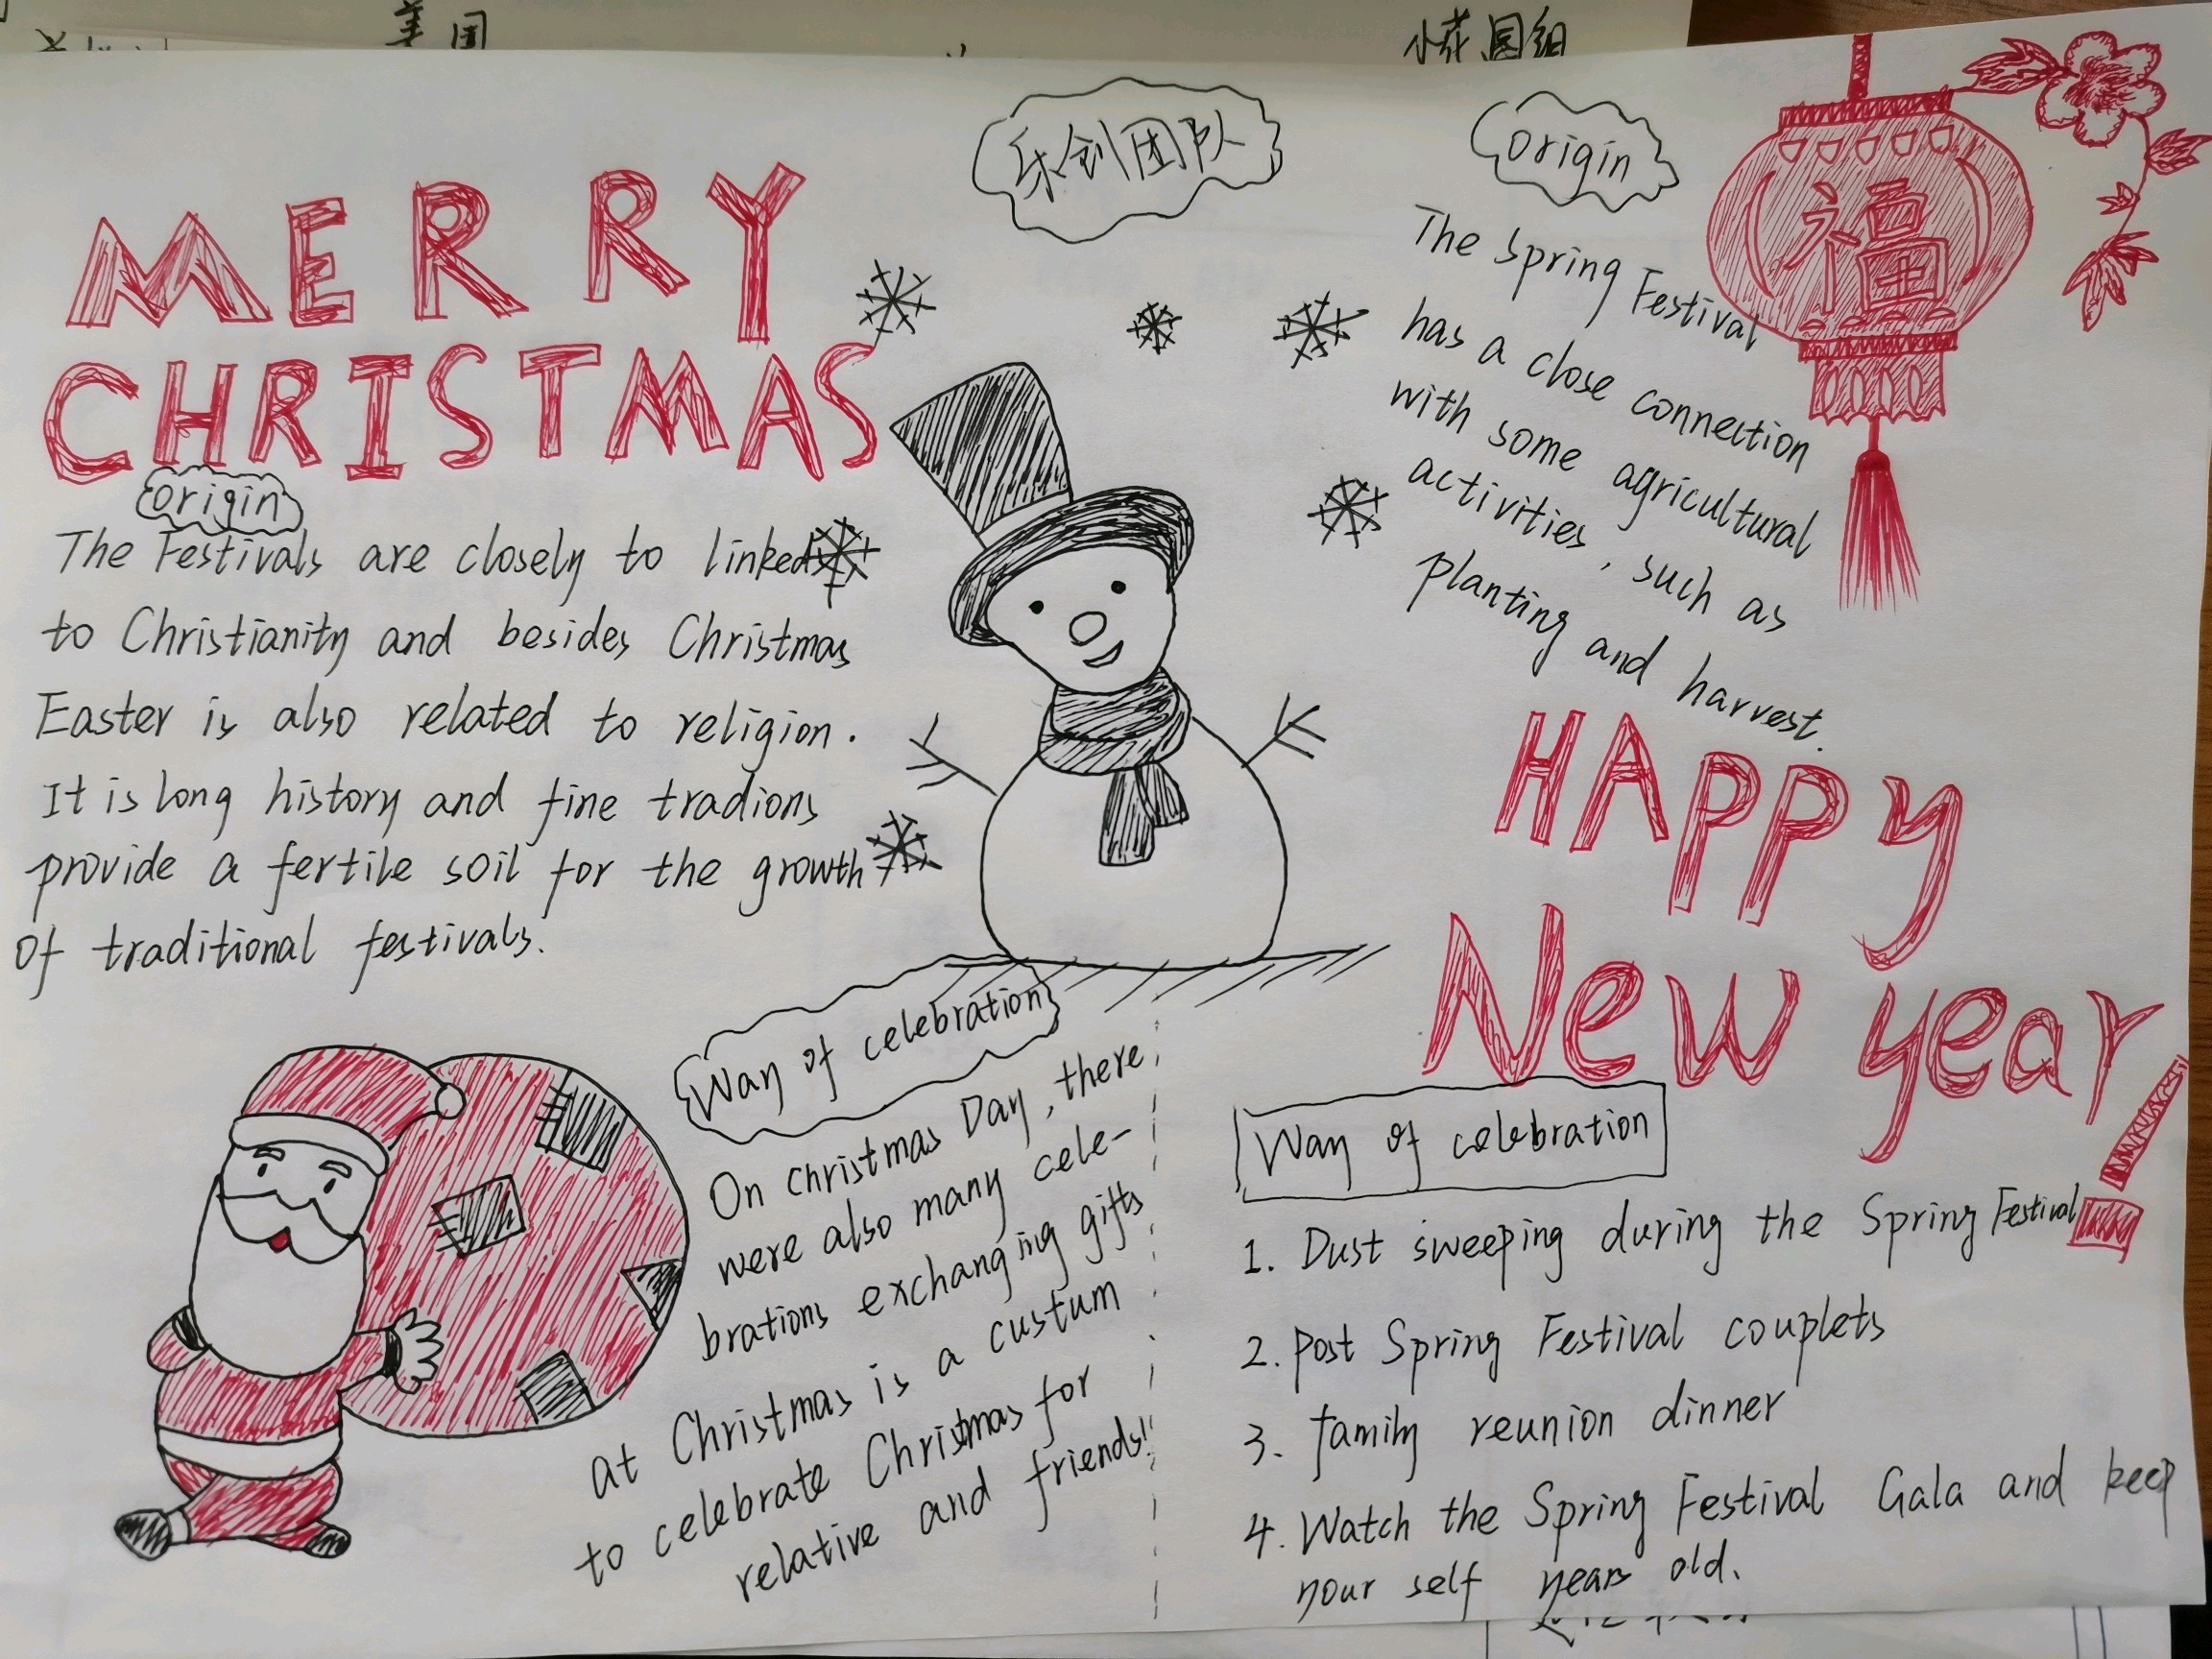 美国
小花园组
乐创团队
MERRY
CHRISTMAS
origin
The Festivals are closely to linked
to Christianity and besides Christmas
Easter is also related to religion.
It is long history and fine tradions
provide a fertile soil for the growth
Of traditional festivals.
Way of celebration
On christmas Day, there
were also many cele-
brations exchanging gifts
at Christmas is a custum
to celebrate Christmas for
relative and friends!
origin
The Spring Festival
has a close connection
with some agricultural
activities, such as
planting and harvest.
福
HAPPY
New year!
Way of celebration
1. Dust sweeping during the Spring Festival
2. Post Spring Festival couplets
3. family reunion dinner
4. Watch the Spring Festival Gala and keep
your self years old.